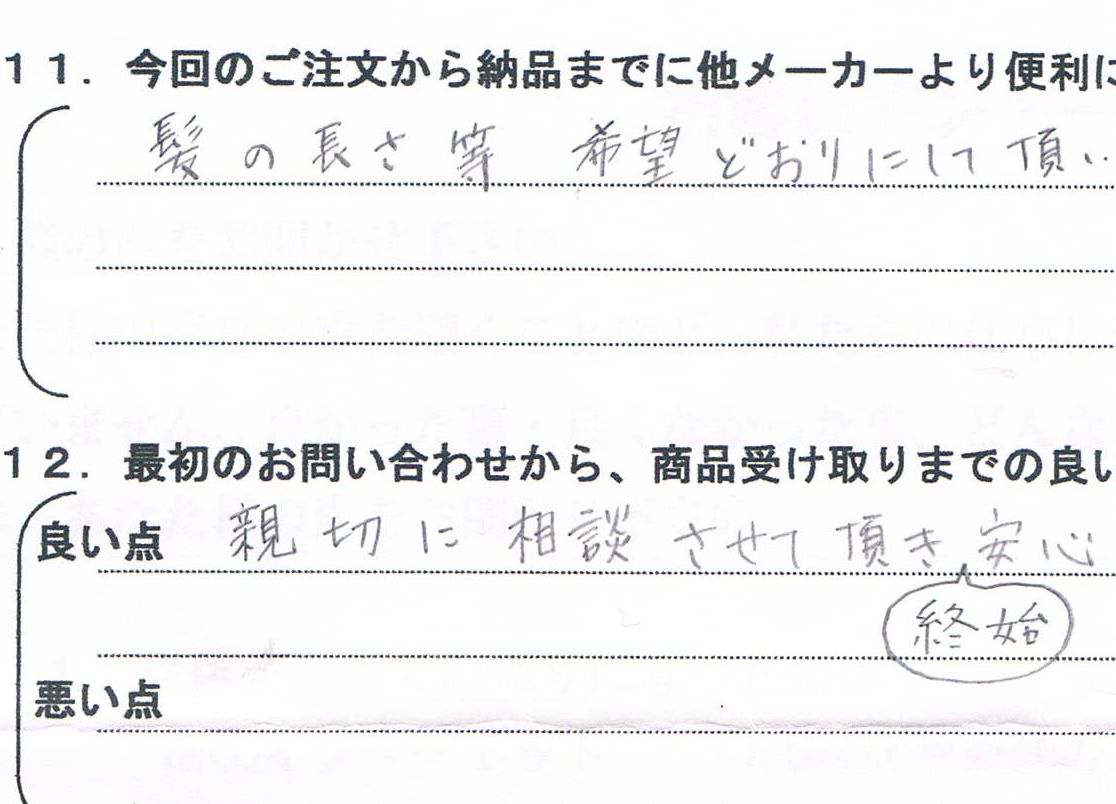 11. 今回のご注文から納品までに他メーカーより便利に
髪の長さ等 希望どおりにして頂い
12. 最初のお問い合わせから、商品受け取りまでの良い
良い点 親切に相談させて頂き安心
終始
悪い点